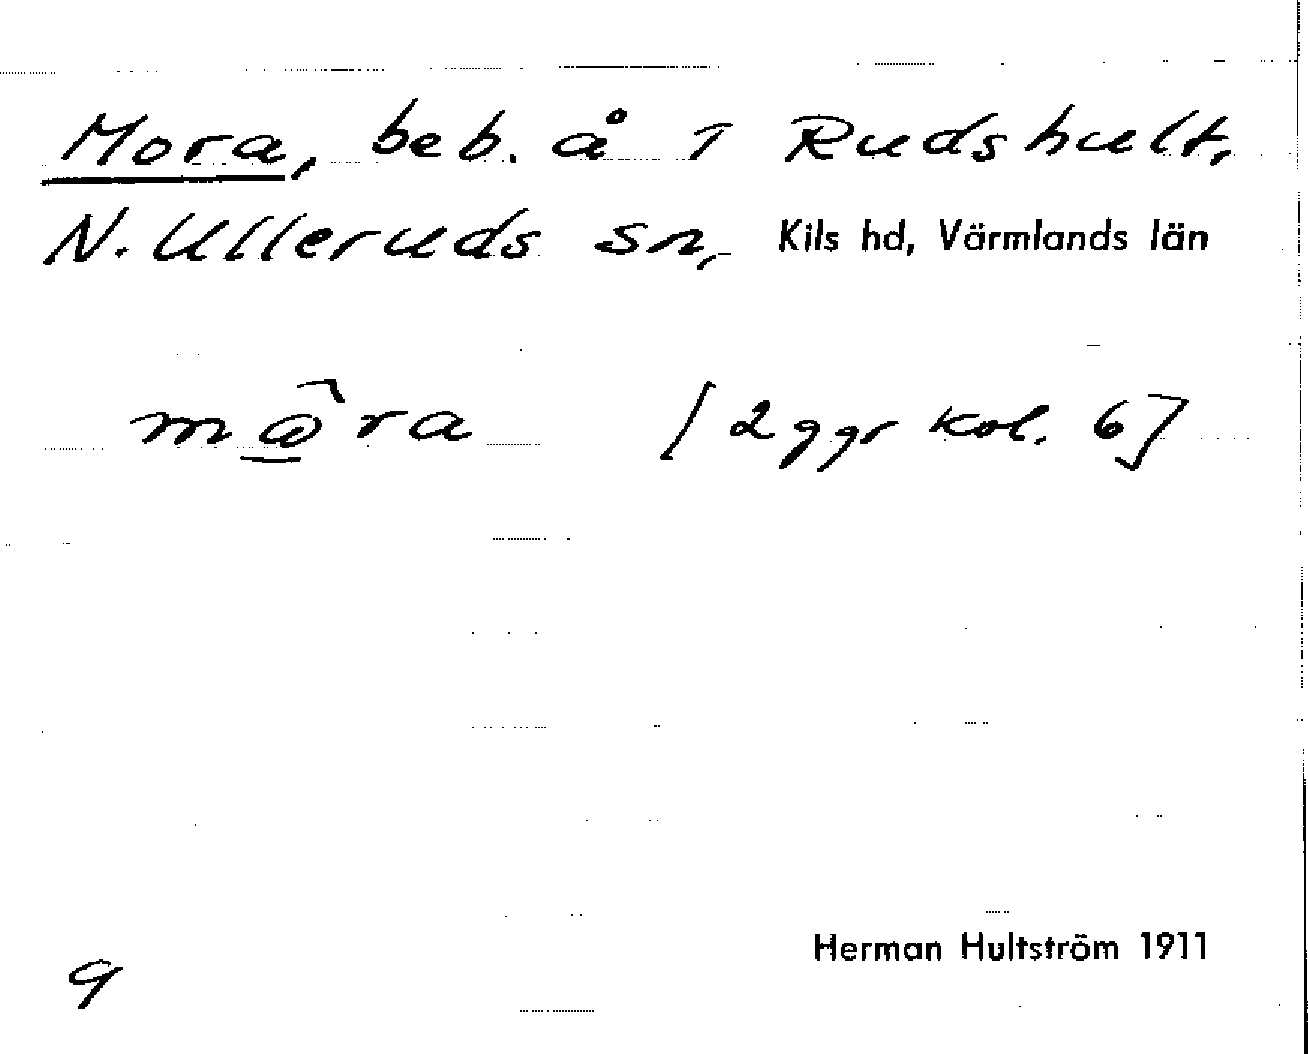 Mora, beb. å 1 Rudshult,
N. Ulleruds sn, Kils hd, Värmlands län
[2 ggr kol. 6]
Herman Hultström 1911
9